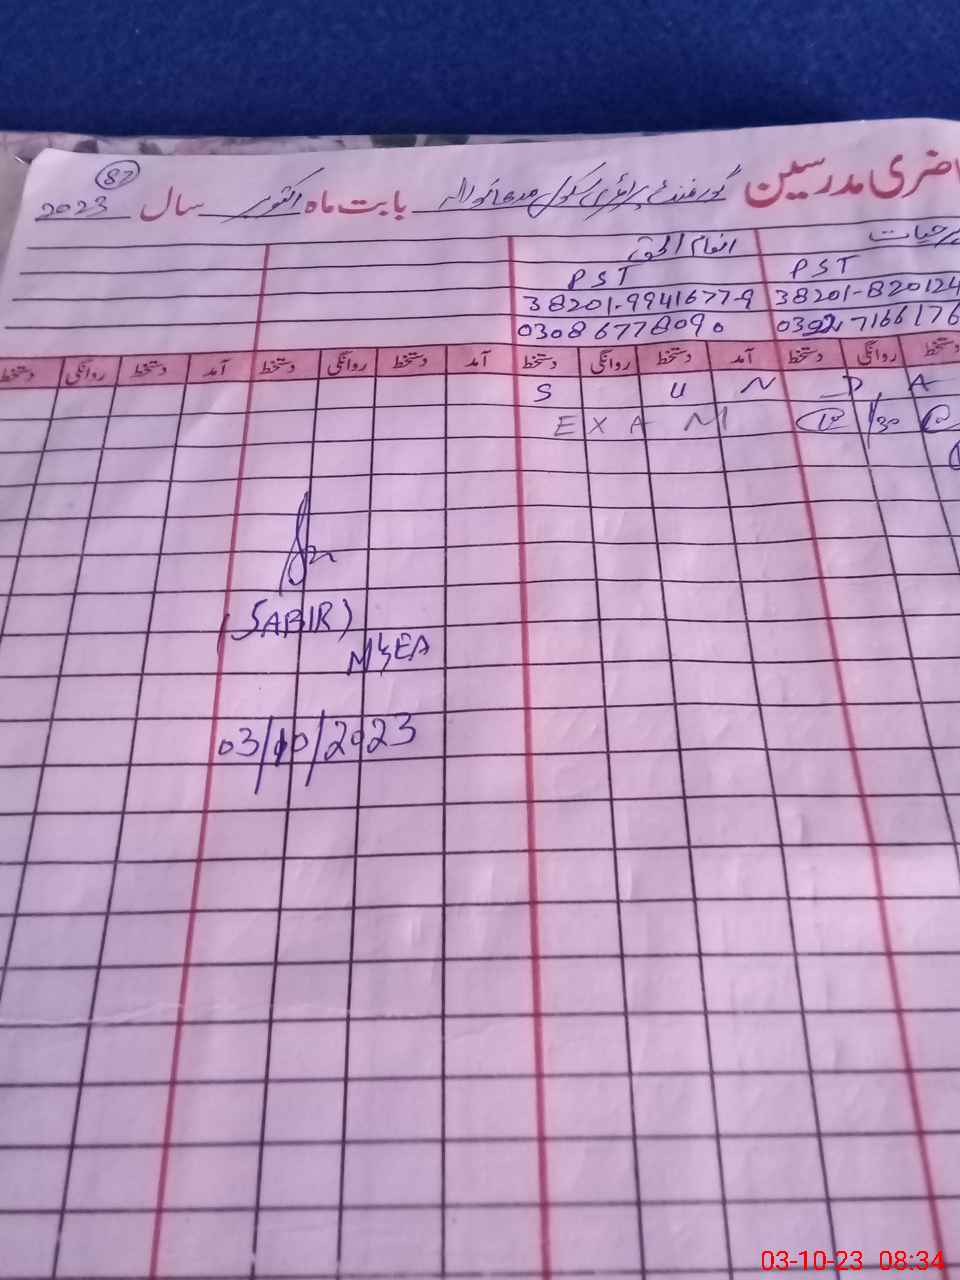 82
حاضری مدرسین گورنمنٹ پرائمری سکول بابت ماہ اکتوبر سال 2023
حیات انعام الحق
PST PST
38201-820124 38201-9941677-9
0302 7166176 03086778090
دستخط روانگی دستخط آمد دستخط روانگی دستخط آمد دستخط روانگی دستخط آمد دستخط روانگی دستخط
S U N D A
E X A M
(SABIR)
M&EA
03/10/2023
03-10-23 08:34